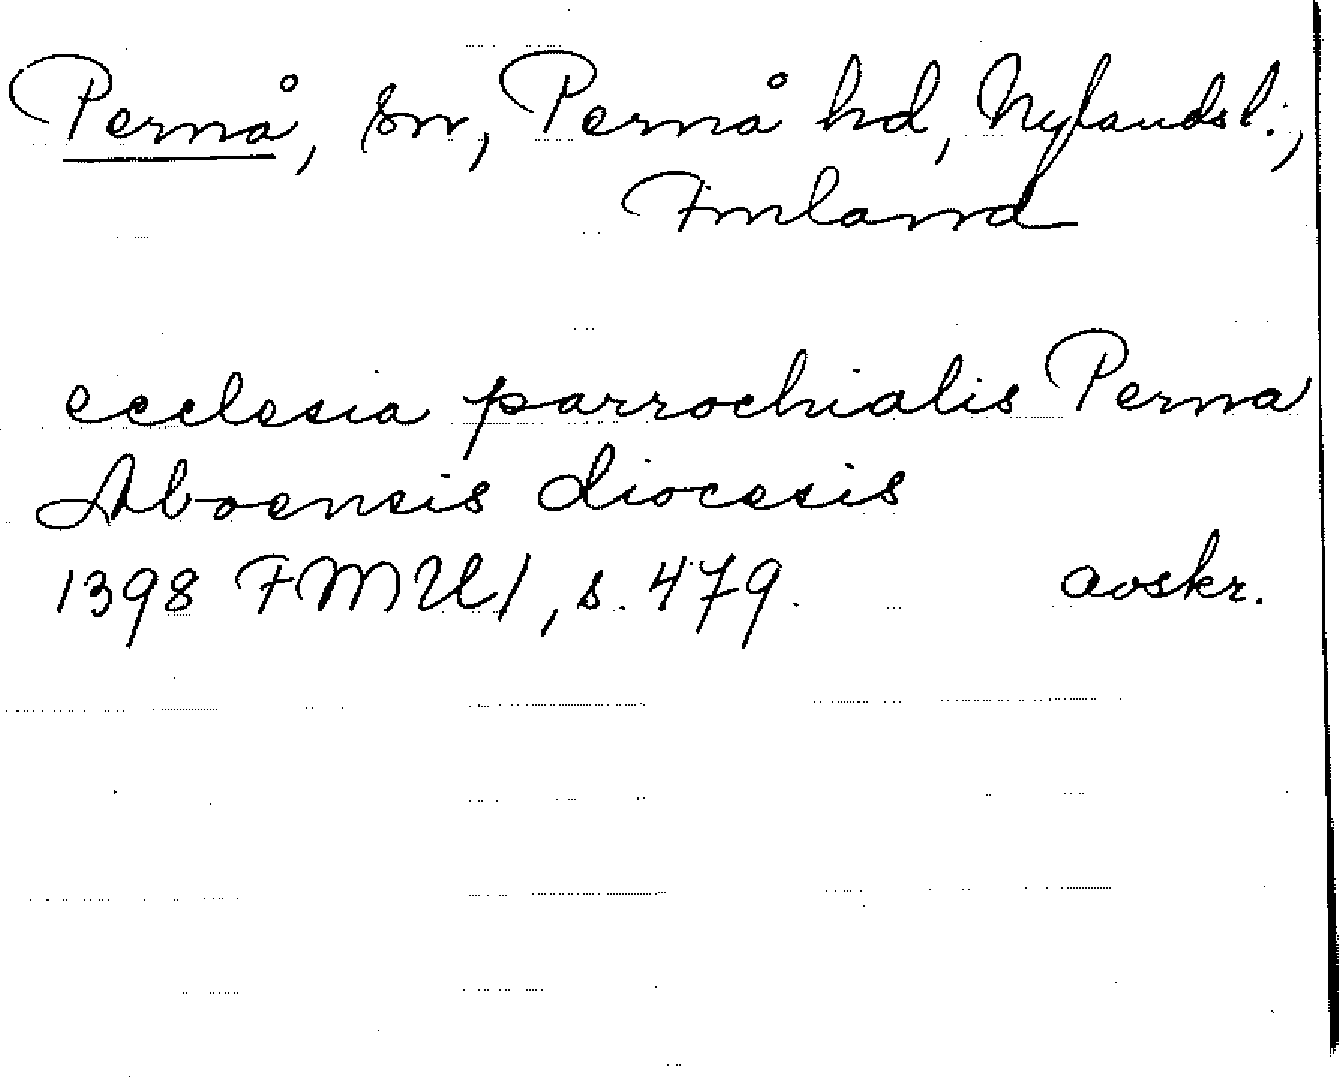 Pernå, sn, Pernå hd, Nylands l.,
Finland
ecclesia parrochialis Perna
Aboensis diocesis
1398 FMU 1, s. 479. avskr.